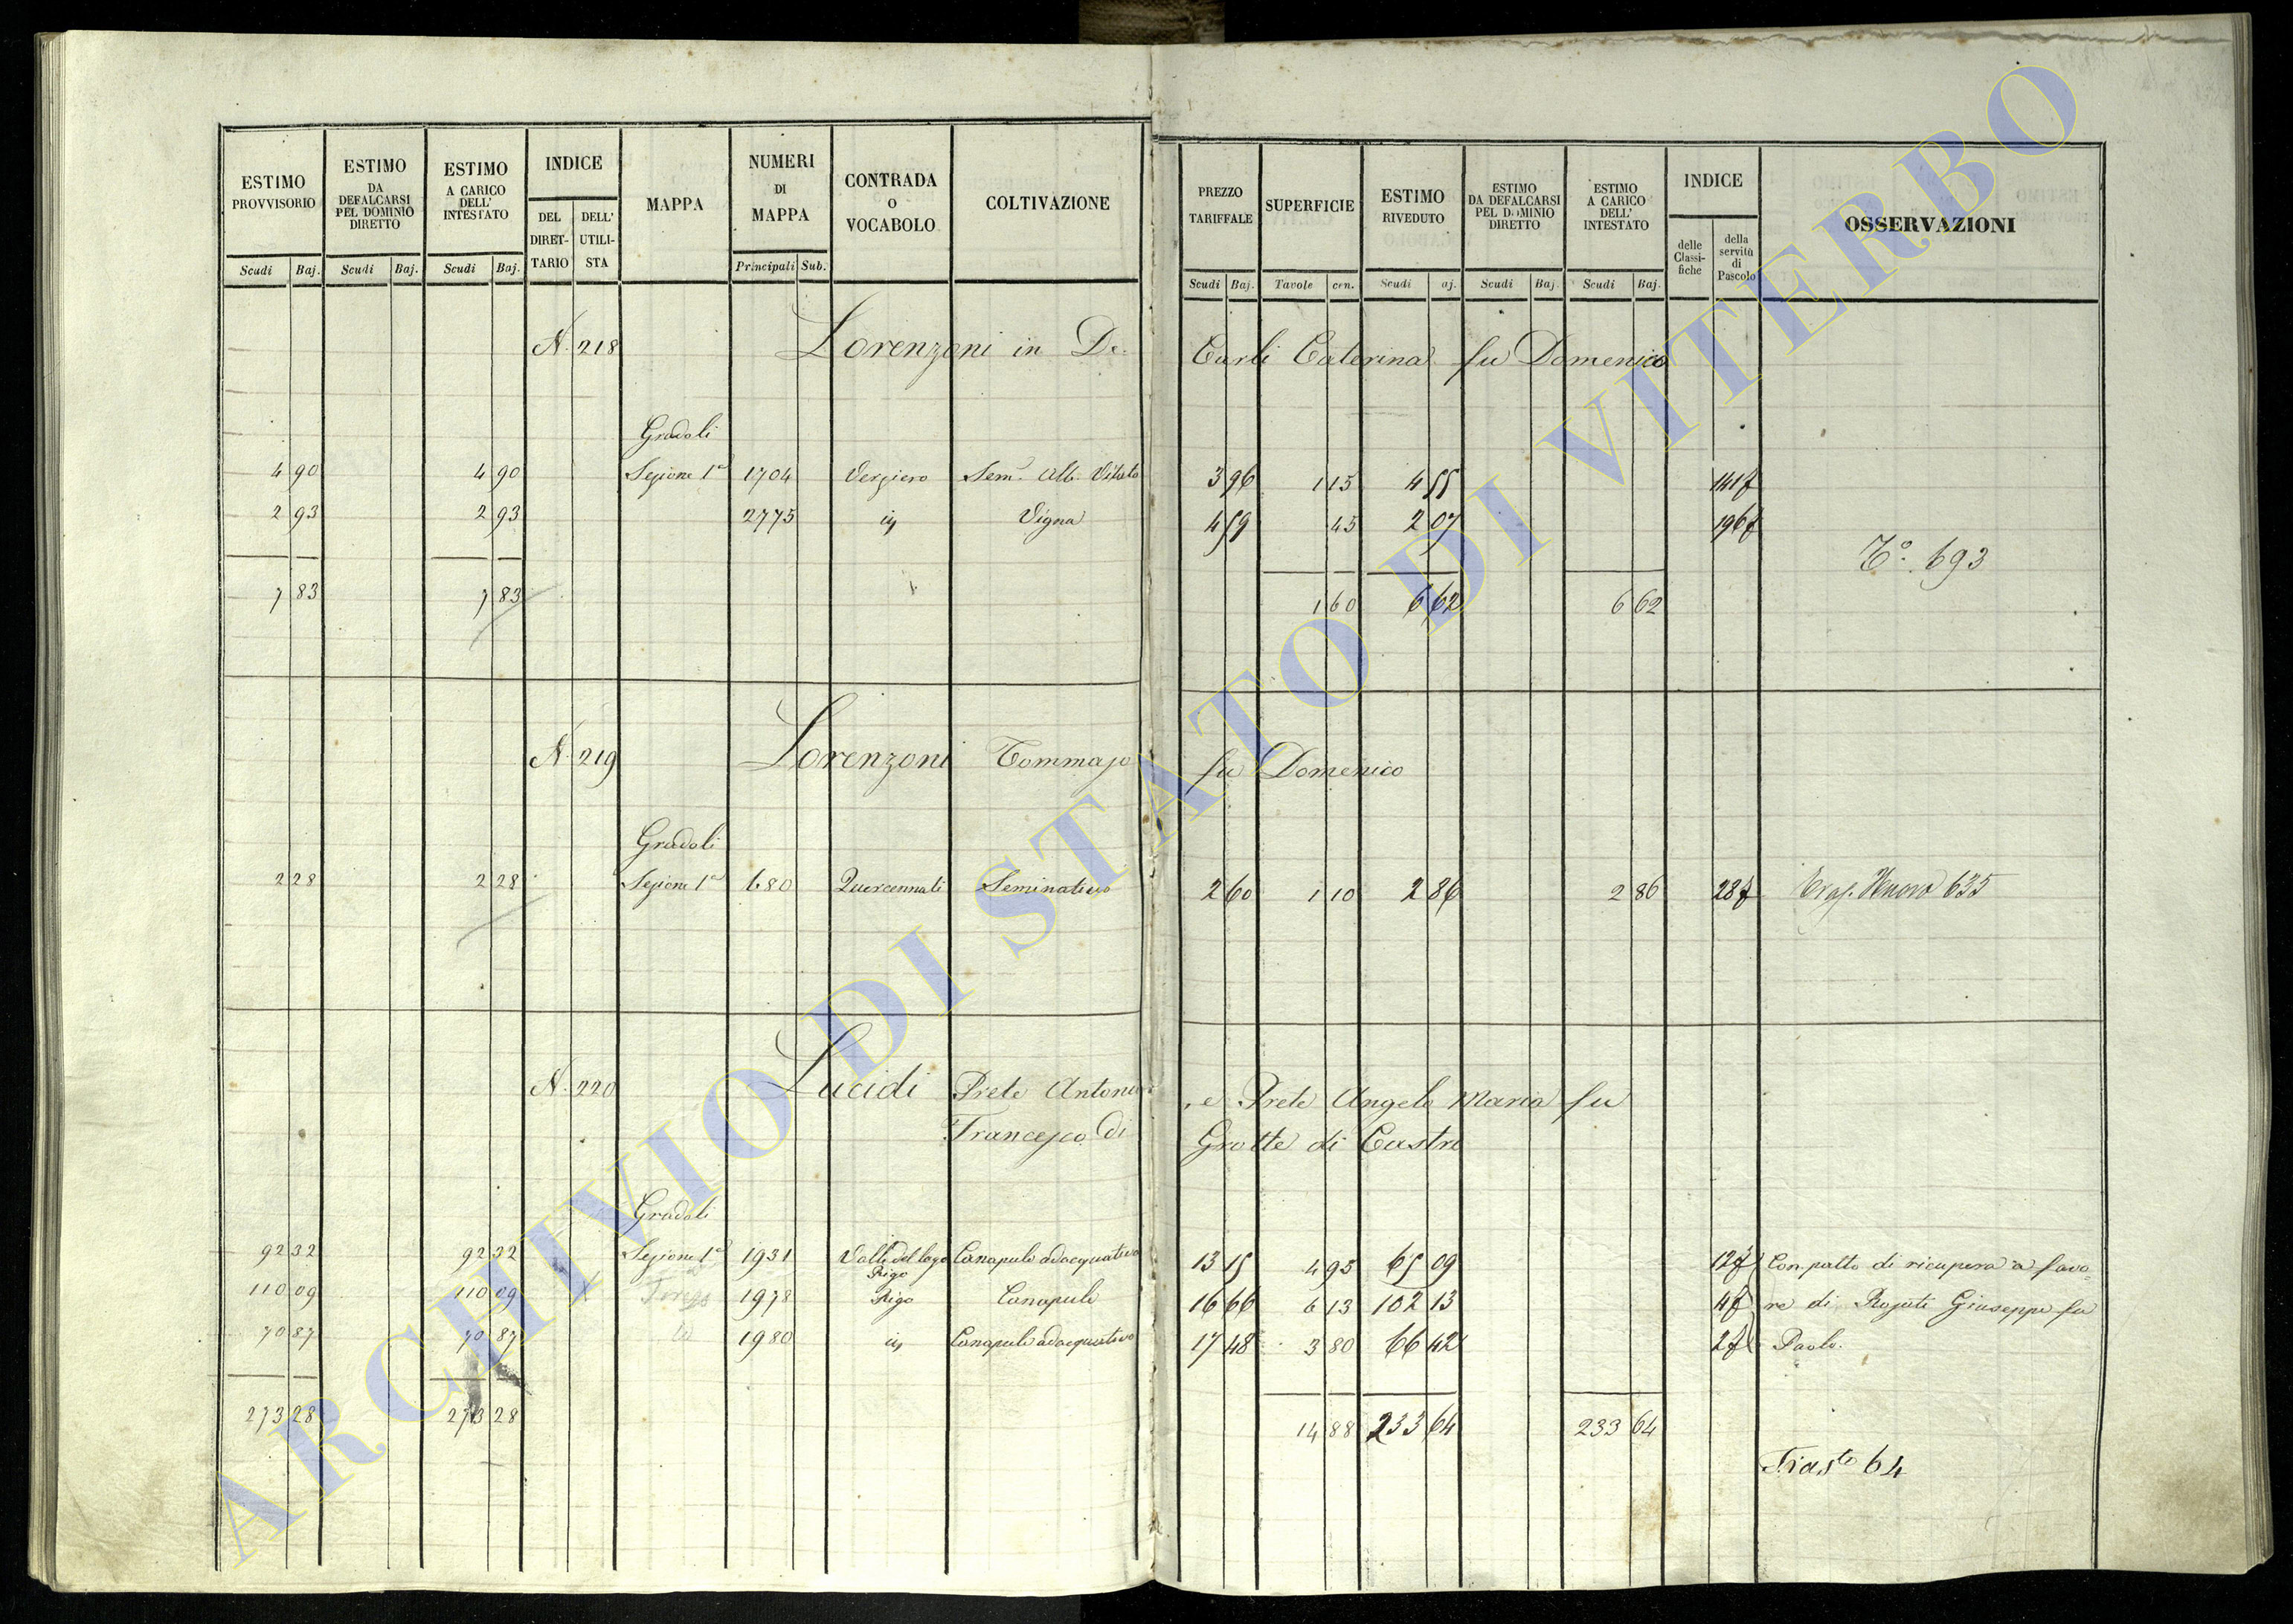 ESTIMO PROVVISORIO | ESTIMO DA DEFALCARSI PEL DOMINIO DIRETTO | ESTIMO A CARICO DELL' INTESTATO | INDICE | MAPPA | NUMERI DI MAPPA | CONTRADA O VOCABOLO | COLTIVAZIONE | PREZZO TARIFFALE | SUPERFICIE | ESTIMO RIVEDUTO | ESTIMO DA DEFALCARSI PEL DOMINIO DIRETTO | ESTIMO A CARICO DELL' INTESTATO | INDICE | OSSERVAZIONI
DEL DIRET-TARIO | DELL' UTILI-STA | delle Classi-fiche | della servitù di Pascolo
Scudi | Baj. | Scudi | Baj. | Scudi | Baj. | Principali | Sub. | Scudi | Baj. | Tavole | cen. | Scudi | aj. | Scudi | Baj. | Scudi | Baj.
N. 218 Lorenzoni in De Carli Caterina fu Domenico
Gradoli
4 90 | 4 90 | Sezione 1a | 1704 | Verziero | Sem. Alb. Vitato | 3 96 | 1 15 | 4 55 | 141
2 93 | 2 93 | 2775 | Vigna | 4 59 | 45 | 2 07 | 196
To. 693
7 83 | 7 83 | 1 60 | 6 62 | 6 62
N. 219 Lorenzoni Tommaso fu Domenico
Gradoli
2 28 | 2 28 | Sezione 1a | 680 | Quercennati | Seminativo | 2 60 | 1 10 | 2 86 | 2 86 | 28 | 635
N. 220 Lucidi Prete Antonio, e Prete Angelo Maria fu
Francesco di Grotte di Castro
Gradoli
92 32 | 92 32 | Sezione 1a | 1931 | Valle del lago Rigo | Canapule adacquativo | 13 15 | 4 95 | 65 09 | 12 | Con patto di ricupera a favo=
110 09 | 110 09 | 1978 | Rigo | Canapule | 16 66 | 6 13 | 102 13 | 4 | re di Giuseppe fu
70 87 | 70 87 | 1980 | Canapule adacquativo | 17 48 | 3 80 | 66 42 | 2 | Paolo.
273 28 | 273 28 | 14 88 | 233 64 | 233 64
64
ARCHIVIO DI STATO DI VITERBO